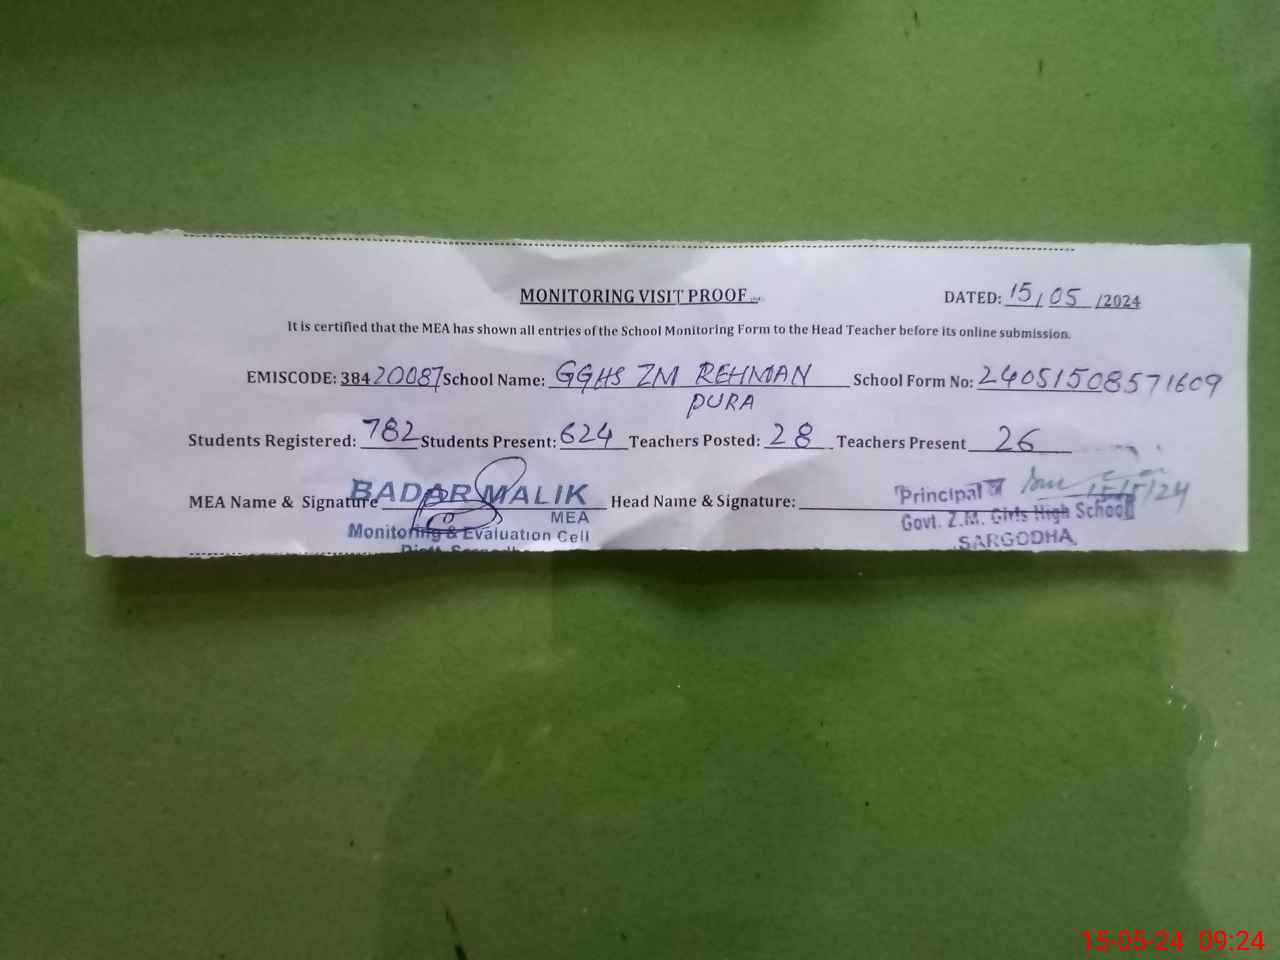 MONITORING VISIT PROOF
DATED: 15/05/2024
It is certified that the MEA has shown all entries of the School Monitoring Form to the Head Teacher before its online submission.
EMISCODE: 38420087 School Name: GGHS ZM REHMAN PURA School Form No: 24051508571609
Students Registered: 782 Students Present: 624 Teachers Posted: 28 Teachers Present 26
MEA Name & Signature BADAR MALIK Head Name & Signature: Principal
MEA 15/5/24
Monitoring & Evaluation Cell Govt. Z.M. Girls High School
SARGODHA
15-05-24 09:24